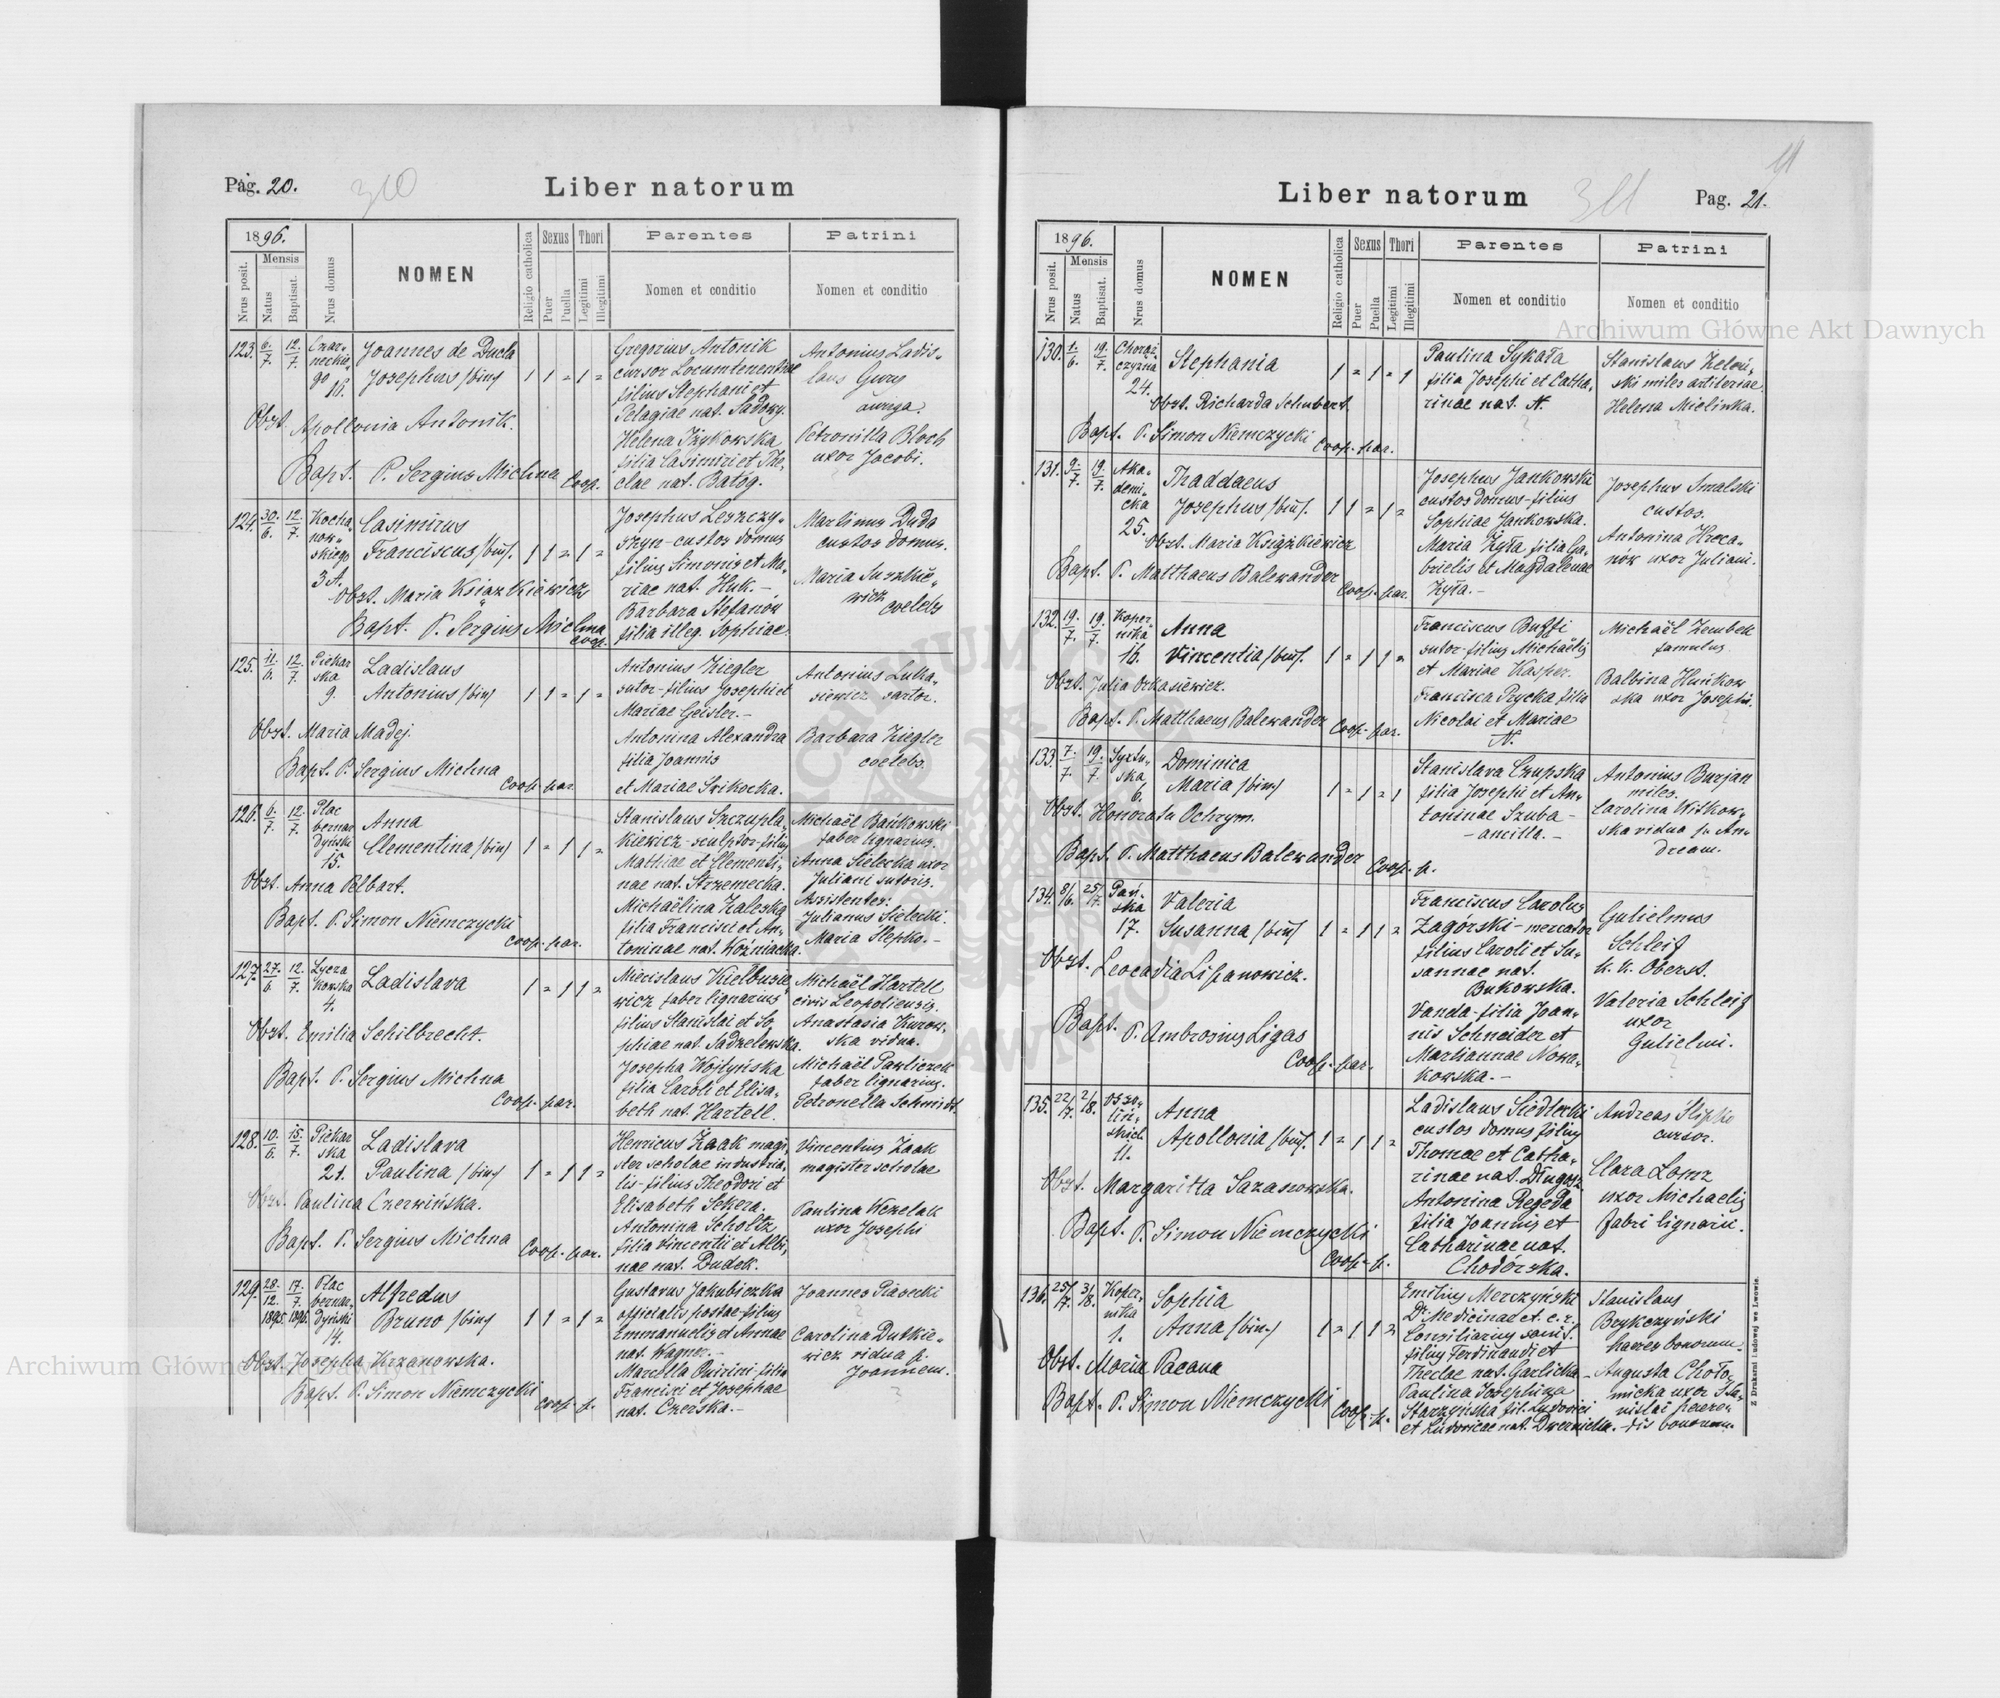 Pag. 20.
310
Liber natorum
1896.
Nrus posit.
Mensis
Natus
Baptisat.
Nrus domus
NOMEN
Religio catholica
Sexus
Puer
Puella
Thori
Legitimi
Illegitimi
Parentes
Nomen et conditio
Patrini
Nomen et conditio
123. 6/7. 12/7.
Czar-
neckie-
go
16.
Joannes de Ducla
Josephus /bin/
1 1 = 1 =
Obst. Apollonia Antonik.
Bapt. P. Sergius Michna Coop.
Gregorius Antonik
cursor Locumtenentiae
filius Stephani et
Pelagiae nat. Sadowy.
Helena Iżykowska
filia Casimiri et The-
clae nat. Batóg.
Antonius Ladis-
laus Gury
auriga.
Petronilla Bloch
uxor Jacobi.
124. 30/6. 12/7.
Kocha-
now-
skiego
3 A.
Casimirus
Franciscus /bin/.
1 1 = 1 =
Obst. Maria Książkiewicz
Bapt. P. Sergius Michna
coop.
Josephus Leszczy-
szyn - custos domus
filius Simonis et Ma-
riae nat. Huk. -
Barbara Stefanów
filia illeg. Sophiae.
Martinus Duda
custos domus.
Maria Suszkie-
wicz
coelebs
125. 11/6. 12/7.
Piekar
ska
9.
Ladislaus
Antonius /bin/
1 1 = 1 =
Obst. Maria Madej.
Bapt. P. Sergius Michna
Coop. par.
Antonius Ziegler
sutor - filius Josephi et
Mariae Geisler. -
Antonina Alexandra
filia Joannis
et Mariae Swikocka.
Antonius Luka-
siewicz sartor.
Barbara Ziegler
coelebs.
126. 6/7. 12/7.
Plac
bernar
dyński
15.
Anna
Clementina /bin/
1 = 1 1 =
Obst. Anna Pelbart.
Bapt. P. Simon Niemczycki
coop. par.
Stanislaus Szczupla-
kiewicz - sculptor - filius
Mathiae et Clementi-
nae nat. Strzemecka.
Michaëlina Zaleska
filia Francisci et An-
toninae nat. Woźniacka.
Michaël Bańkowski
faber lignarius.
Anna Sielecka uxor
Juliani sutoris.
Assistentes:
Julianus Sielecki.
Maria Ślepko. -
127. 27/6. 12/7.
Łycza
kowska
4.
Ladislava
1 = 1 1 =
Obst. Emilia Schilbrecht.
Bapt. P. Sergius Michna
Coop. par.
Miecislaus Kielbusie-
wicz faber lignarius
filius Stanislai et So
phiae nat. Sadzelewska.
Josepha Wojtyńska
filia Caroli et Elisa-
beth nat. Hartell.
Michaël Hartell
civis Leopoliensis.
Anastasia Kurow-
ska vidua.
Michaël Pawliczek
faber lignarius.
Petronella Schmidt.
128. 10/6. 15/7.
Piekar
ska
21.
Ladislava
Paulina /bin/
1 = 1 1 =
Obst. Paulina Czerwińska.
Bapt. P. Sergius Michna Coop. par.
Henricus Żaak magi-
ster scholae industria-
lis - filius Theodori et
Elisabeth Sekera.
Antonina Scholtz
filia Vincentii et Albi-
nae nat. Dudek.
Vincentius Żaak
magister scholae
Paulina Wczelak
uxor Josephi
129. 28/12. 1895. 17/7. 1896.
Plac
bernar-
dyński
14.
Alfredus
Bruno /bin/
1 1 = 1 =
Obst. Josepha Krzanowska.
Bapt. P. Simon Niemczycki
coop. p.
Gustavus Jakubiczka
officialis postae - filius
Emmanuelis et Annae
nat. Wagner. -
Marcella Quirini - filia
Francisci et Josephae
nat. Czerska. -
Joannes Piasecki
?
Carolina Dutkie-
wicz vidua p.
Joannem.
?
311
Liber natorum
Pag. 21.
1896.
Nrus posit.
Mensis
Natus
Baptisat.
Nrus domus
NOMEN
Religio catholica
Sexus
Puer
Puella
Thori
Legitimi
Illegitimi
Parentes
Nomen et conditio
Patrini
Nomen et conditio
130. 1/6. 19/7.
Chorąż
czyzna
24.
Stephania
1 = 1 = 1
Obst. Richarda Schubert.
Bapt. P. Simon Niemczycki
Coop. par.
Paulina Sykała
filia Josephi et Catha-
rinae nat. N.
?
Stanislaus Zeleń-
ski miles artileriae
Helena Mielinka.
?
131. 9/7. 19/7.
Aka-
demi-
cka
25.
Thaddaeus
Josephus /bin/.
1 1 = 1 =
Obst. Maria Książkiewicz
Bapt. P. Matthaeus Balewander
Coop. par.
Josephus Jankowski
custos domus - filius
Sophiae Jankowska.
Maria Żyła filia Ga-
brielis et Magdalenae
Żyła. -
Josephus Smalski
custos.
Antonina Hreca-
nów uxor Juliani.
?
132. 19/7. 19/7.
Koper-
nika
16.
Anna
Vincentia /bin/.
1 = 1 1 =
Obst. Julia Orkasiewicz.
Bapt. P. Matthaeus Balewander
Coop. par.
Franciscus Buffi
sutor - filius Michaëlis
et Mariae Kasper.
Francisca Prycka filia
Nicolai et Mariae
N.
Michaël Zembek
famulus.
Balbina Huńkow
ska uxor Josephi.
?
133. 7/7. 19/7.
Syxtu-
ska
6.
Dominica
Maria /bin/
1 = 1 = 1
Obst. Honorata Ochrym.
Bapt. P. Matthaeus Balewander Coop. p.
Stanislava Czupska
filia Josephi et An-
toninae Szuba -
- ancilla. -
Antonius Burjan
miles.
Carolina Witkow-
ska vidua p. An-
dream.
?
134. 8/6. 25/7.
Pań-
ska
17.
Valeria
Susanna /bin/
1 = 1 1 =
Obst. Leocadia Lipanowicz.
Bapt. P. Ambrosius Ligas
Coop. par.
Franciscus Carolus
Zagórski - mercator
filius Caroli et Su-
sannae nat.
Bukowska.
Vanda - filia Joan-
nis Schneider et
Martiannae Nowa-
kowska. -
Gulielmus
Schleif
k. k. Oberst.
Valeria Schleif
uxor
Gulielmi.
?
135. 22/7. 2/8.
Osso-
liń-
skich
11.
Anna
Apollonia /bin/.
1 = 1 1 =
Obst. Margaritta Sazanowska.
Bapt. P. Simon Niemczycki
Coop. p.
Ladislaus Siedlecki
custos domus filius
Thomae et Catha-
rinae nat. Długosz
Antonina Regeda
filia Joannis et
Catharinae nat.
Chodorska.
Andreas Ślipko
cursor.
Clara Lonz
uxor Michaelis
fabri lignarii.
136. 25/7. 3/8.
Koper-
nika
1.
Sophia
Anna /bin/
1 = 1 1 =
Obst. Maria Pacana
Bapt. P. Simon Niemczycki Coop. p.
Emilius Merczyński
Dr. Medicinae et. c. r.
Consiliarius sanit.
filius Ferdinandi et
Theclae nat. Garlicka -
Paulina Josephina
Starzyńska fil. Ludovici
et Ludovicae nat. Dwernicka. -
Stanislaus
Brykczyński
haeres bonorum.
Augusta Choło-
niecka uxor Sta-
nislai haere-
dis bonorum.
Z Drukarni Ludowej we Lwowie.
Archiwum Główne Akt Dawnych
Archiwum Główne Akt Dawnych